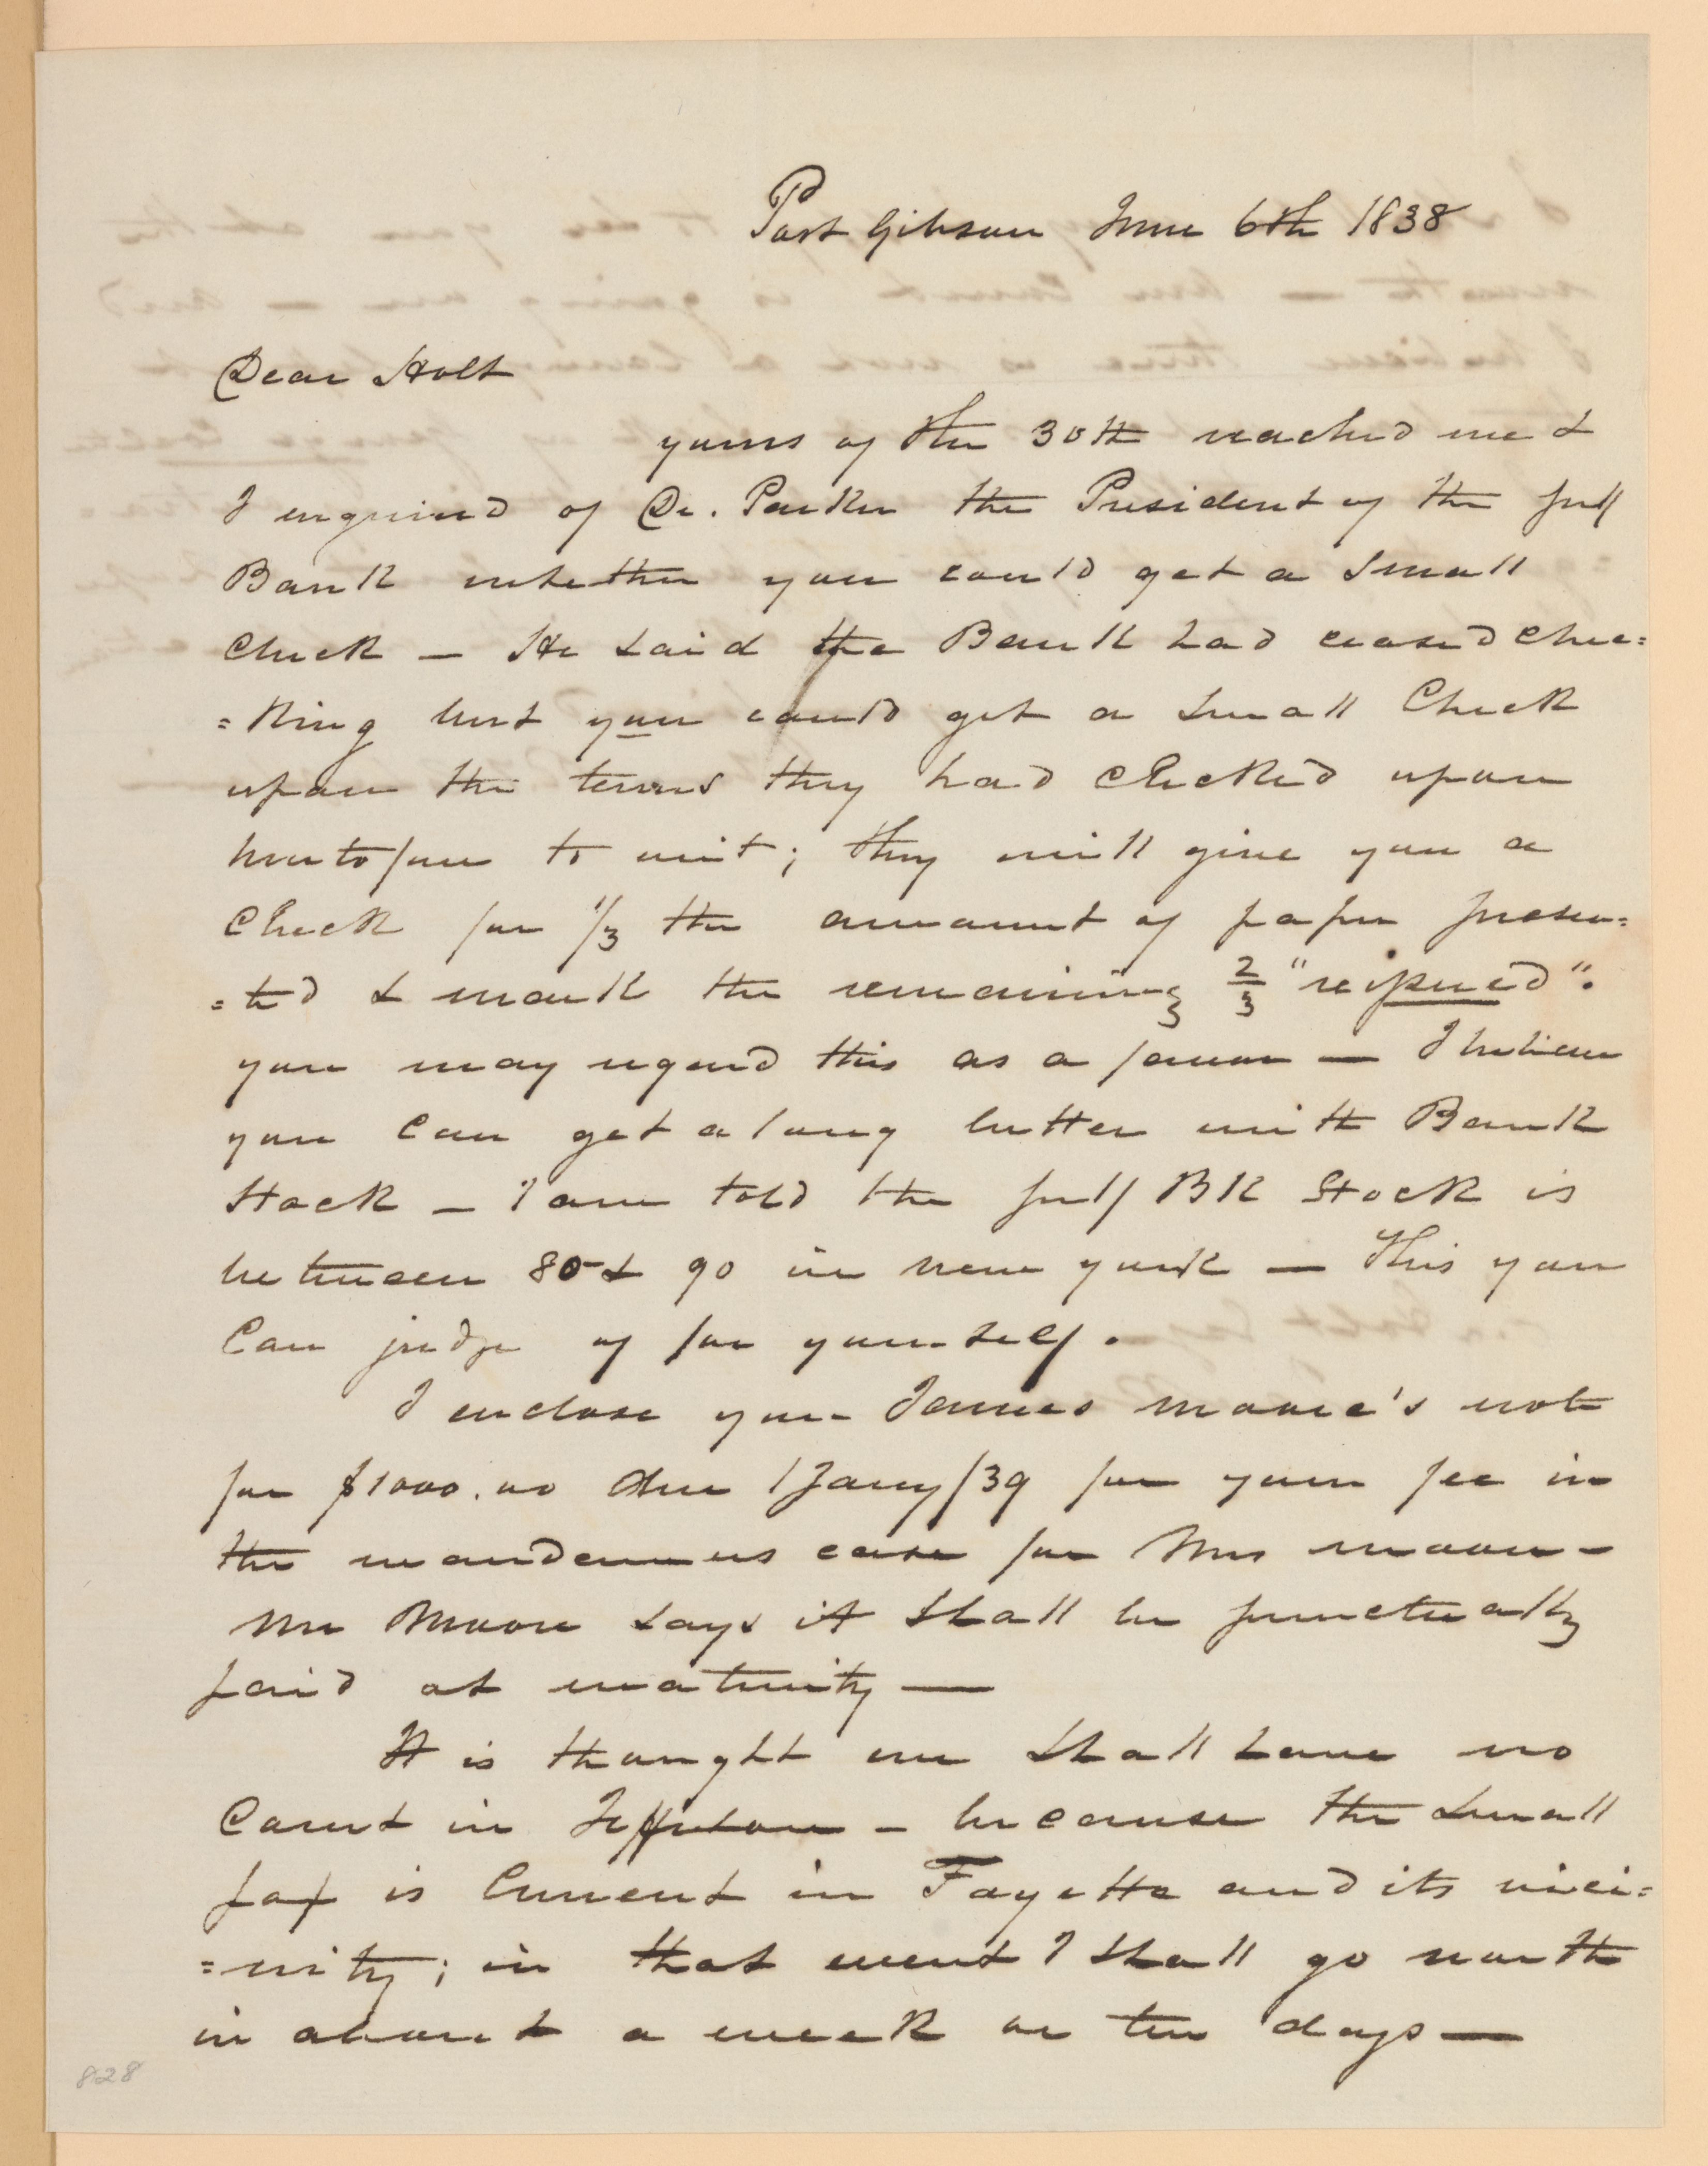 Port Gibson June 6th 1838
Dear Holt
yours of the 30th reached me &
I enquired of Dr. Parker the President of the Gulf
Bank whether you could get a small
Check — He said the Bank had ceased chec=
=king but you could get a small Check
upon the terms they had checked upon
heretofore to wit; they will give you a
Check for 1/3 the amount of paper presen=
=ted & mark the remaining 2/3 "refused".
you may regard this as a favour — I believe
you can get along better with Bank
Stock — I am told the Gulf BK Stock is
between 80 & 90 in new york — This you
Can judge of for yourself.
I enclose you James Moore's note
for $1000.00 due 1 Jany/39 for your fee in
the mandamus case for Mrs Moore -
Mr Moore says it shall be punctually
paid at maturity —
It is thought we shall have no
Court in Jefferson - because the small
pox is Current in Fayette and its vici=
=nity; in that event I shall go north
in about a week or ten days —
828